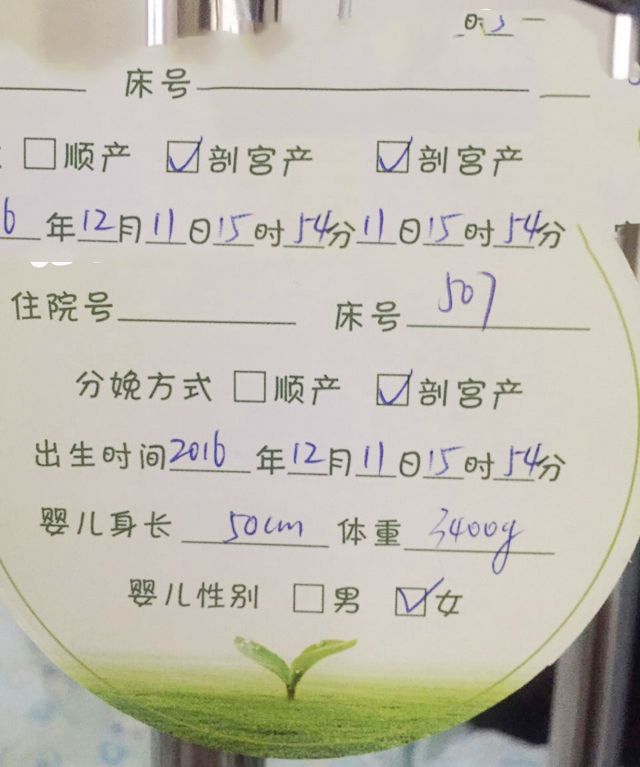 床号
☐顺产 ☑剖宫产 ☑剖宫产
6年12月11日15时54分11日15时54分
住院号 床号507
分娩方式 ☐顺产 ☑剖宫产
出生时间2016年12月11日15时54分
婴儿身长 50cm 体重 3400g
婴儿性别 ☐男 ☑女